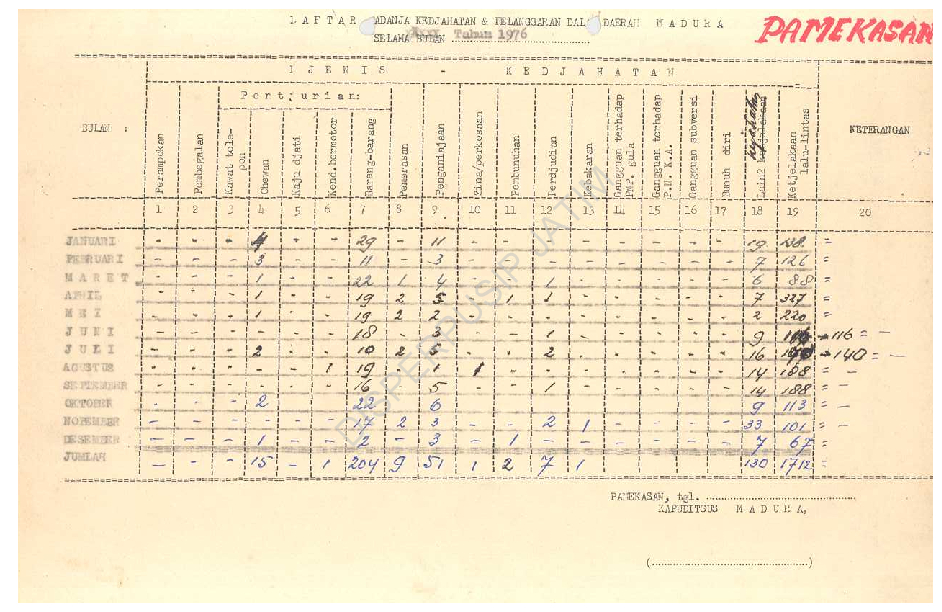 DAFTAR ADANJA KEDJAHATAN & PELANGGARAN DALAM DAERAH MADURA
PAMEKASAN
SELAMA BULAN Tahun 1976
DJENIS - KEDJAHATAN
Pentjurian:
BULAN :
Perampokan
Pembegalan
Kawat tele-pon
Chewan
Kaju djati
Kend. bermotor
Barang-barang
Pemerasan
Penganiajaan
Zina/perkosaan
Pembunuhan
Perdjudian
Kebakaran
Gangguan terhadap PN. gula
Gangguan terhadap P.N.K.A.
Gangguan subversi
Bunuh diri
Lain2 kedjahatan
Ketjelakaan lalu-lintas
KETERANGAN
1 2 3 4 5 6 7 8 9 10 11 12 13 14 15 16 17 18 19 20
JANUARI - - - 4 - - 29 - 11 - - - - - - - - 19 138 =
PEBRUARI - - - 3 - - 11 - 3 - - - - - - - - 7 126 =
MARET - - - 1 - - 22 1 4 - - 1 - - - - - 6 88 =
APRIL - - - 1 - - 19 2 5 - 1 1 - - - - - 7 327 =
MEI - - - 1 - - 19 2 2 - - - - - - - - 2 220 =
JUNI - - - - - - 18 - 3 - - 1 - - - - - 9 116 → 116 = -
JULI - - - 2 - - 10 2 5 - - 2 - - - - - 16 140 → 140 = -
AGUSTUS - - - - - 1 19 - 1 1 - - - - - - - 14 188 = -
SEPTEMBER - - - - - - 16 - 5 - - 1 - - - - - 14 188 = -
OKTOBER - - - 2 - - 22 - 6 - - - - - - - - 9 113 = -
NOPEMBER - - - - - - 17 2 3 - - 2 1 - - - - 33 101 = -
DESEMBER - - - 1 - - 2 - 3 - 1 - - - - - - 7 67 =
JUMLAH - - - 15 - 1 204 9 51 1 2 7 1 - - - - 130 1712 =
PAMEKASAN, tgl.
KAPUDITSUS MADURA,
(....................)
DISPERPUSIP JATIM